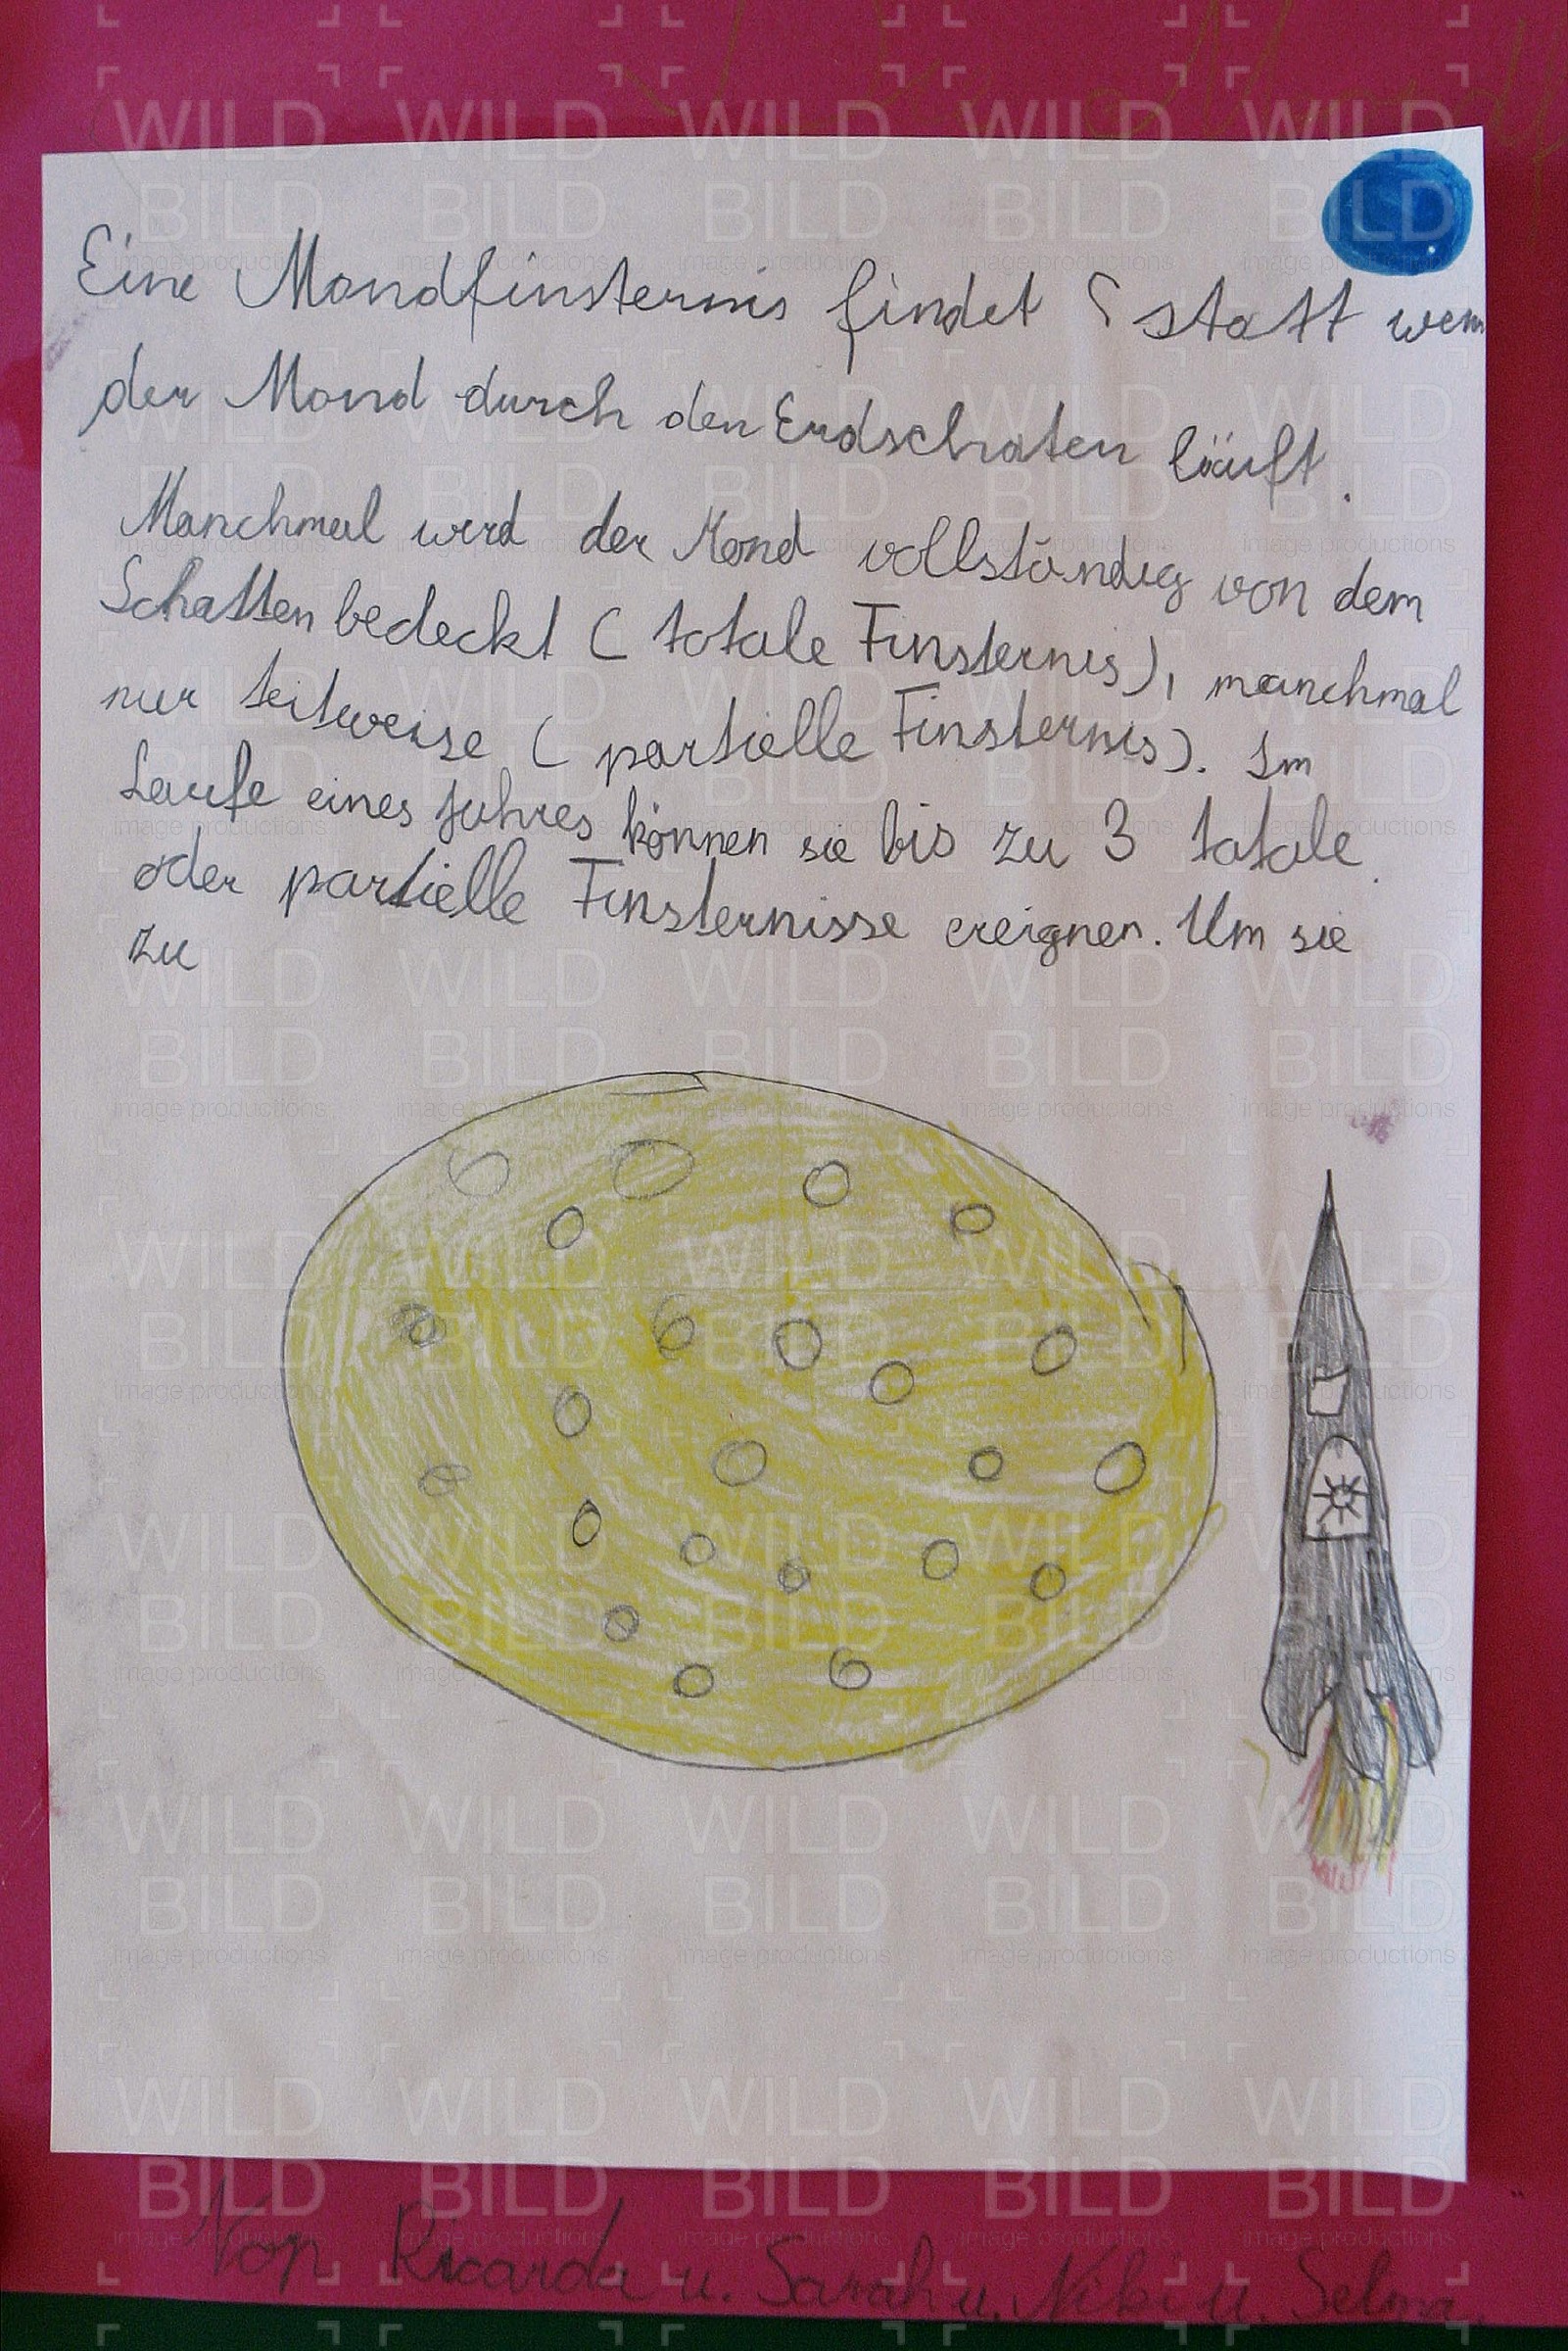 Eine Mondfinsternis findet statt wenn
der Mond durch den Erdschaten läuft.
Manchmal wird der Mond vollständig von dem
Schatten bedeckt ( totale Finsternis), manchmal
nur teilweise ( partielle Finsternis). Im
Laufe eines Jahres können sie bis zu 3 totale
oder partielle Finsternisse ereignen. Um sie
zu
Von Ricarda u. Sarah u. Niki u. Selma.
WILD
BILD
image productions